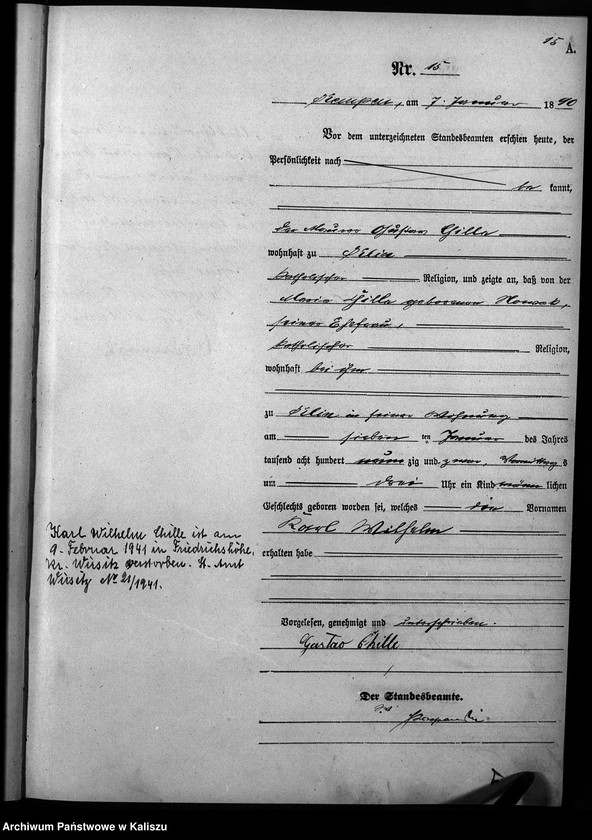 15 A.
Nr. 15
Kempen, am 7. Januar 1890
Vor dem unterzeichneten Standesbeamten erschien heute, der
Persönlichkeit nach
be kannt,
der Maurer Gustav Chille
wohnhaft zu
katholischer Religion, und zeigte an, daß von der
Maria Chille geborenen Nowak,
seiner Ehefrau,
katholischer Religion,
wohnhaft bei ihm
zu in seiner Wohnung
am sieben ten Januar des Jahres
tausend acht hundert neun zig und zwar, Vormittags
um drei Uhr ein Kind männ lichen
Geschlechts geboren worden sei, welches die Vornamen
Karl Wilhelm
erhalten habe
Karl Wilhelm Chille ist am
9. Februar 1941 in Friedrichshöhe,
Kr. Wirsitz verstorben. St. Amt
Wirsitz No 21/1941.
Vorgelesen, genehmigt und unterschrieben.
Gustav Chille
Der Standesbeamte.
Archiwum Państwowe w Kaliszu